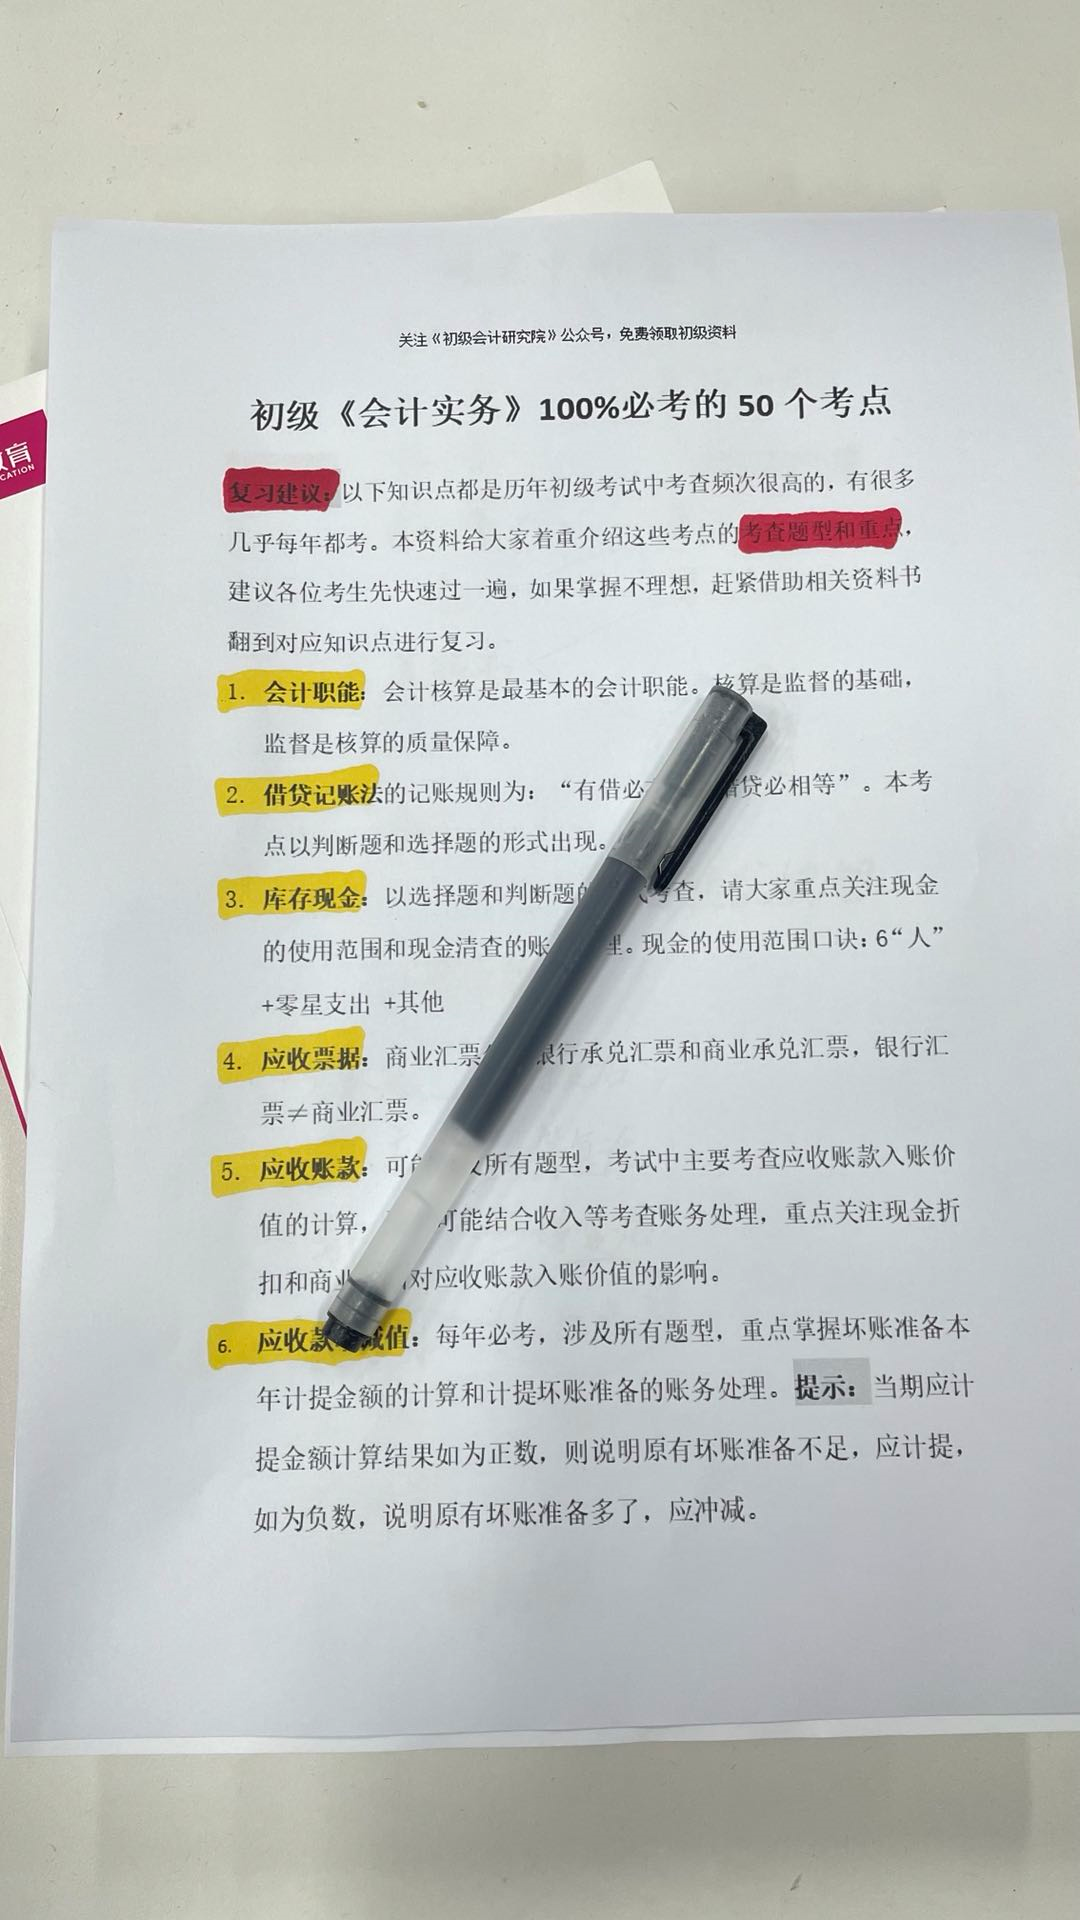 关注《初级会计研究院》公众号，免费领取初级资料
初级《会计实务》100%必考的 50 个考点
教育
CATION
复习建议：以下知识点都是历年初级考试中考查频次很高的，有很多
几乎每年都考。本资料给大家着重介绍这些考点的考查题型和重点，
建议各位考生先快速过一遍，如果掌握不理想，赶紧借助相关资料书
翻到对应知识点进行复习。
1. 会计职能：会计核算是最基本的会计职能。核算是监督的基础，
监督是核算的质量保障。
2. 借贷记账法的记账规则为：“有借必 借贷必相等”。本考
点以判断题和选择题的形式出现。
3. 库存现金：以选择题和判断题的 考查，请大家重点关注现金
的使用范围和现金清查的账 理。现金的使用范围口诀：6“人”
+零星支出 +其他
4. 应收票据：商业汇票 银行承兑汇票和商业承兑汇票，银行汇
票≠商业汇票。
5. 应收账款：可 及所有题型，考试中主要考查应收账款入账价
值的计算， 可能结合收入等考查账务处理，重点关注现金折
扣和商业 对应收账款入账价值的影响。
6. 应收款 减值：每年必考，涉及所有题型，重点掌握坏账准备本
年计提金额的计算和计提坏账准备的账务处理。提示：当期应计
提金额计算结果如为正数，则说明原有坏账准备不足，应计提，
如为负数，说明原有坏账准备多了，应冲减。